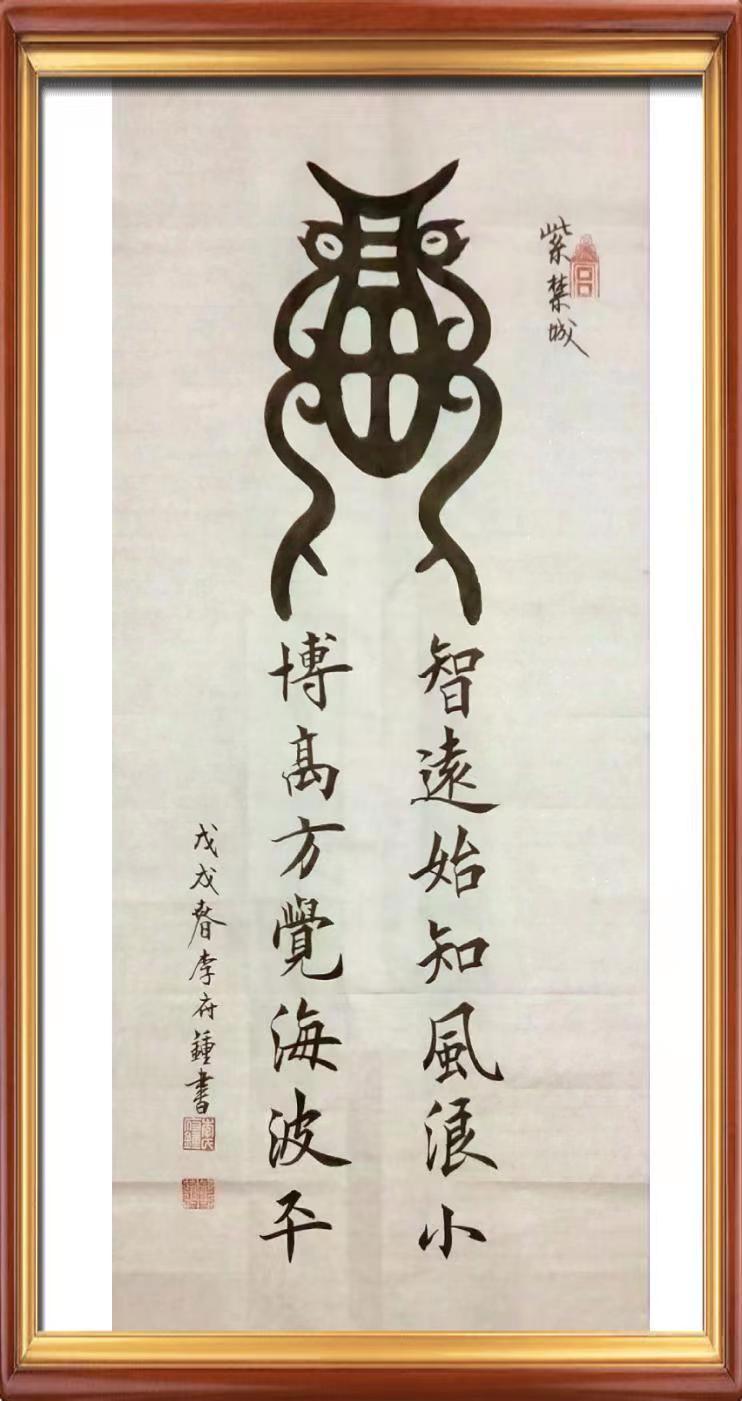 紫禁城
智遠始知風浪小
博高方覺海波平
戊戌春李府鍾書